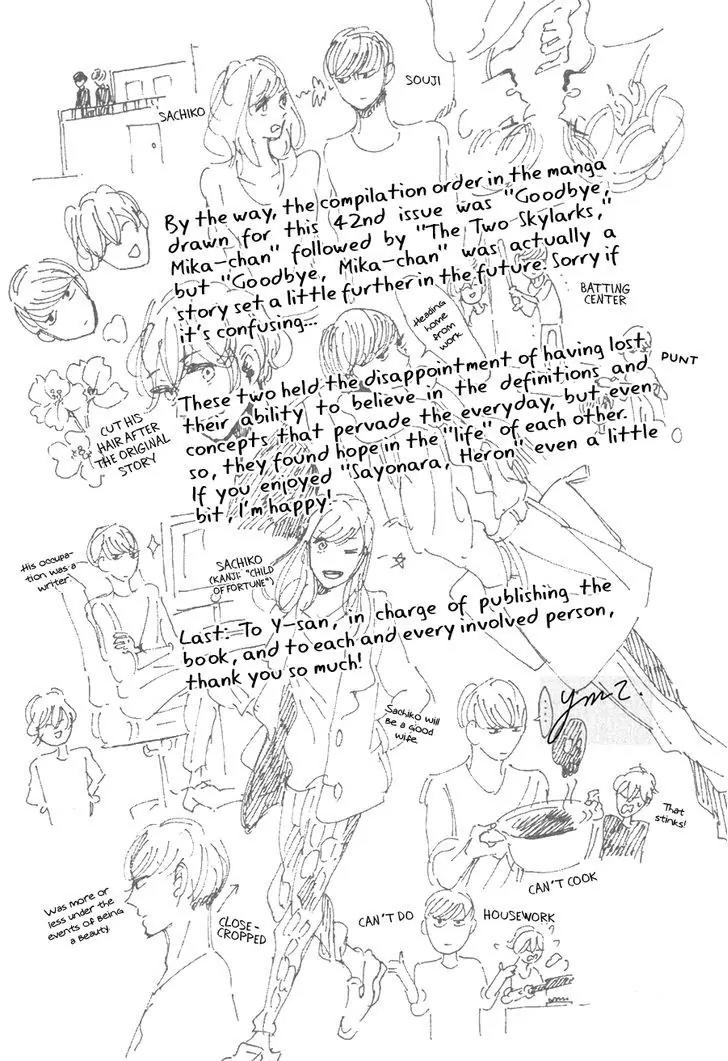 SACHIKO
SOUJI
By the way, the compilation order in the manga
drawn for this 42nd issue was "Goodbye,
Mika-chan" followed by "The Two Skylarks,"
but "Goodbye, Mika-chan" was actually a
story set a little further in the future. Sorry if
it's confusing...
BATTING
CENTER
Heading
home
from
work
PUNT
These two held the disappointment of having lost
their ability to believe in the definitions and
concepts that pervade the everyday, but even
so, they found hope in the "life" of each other.
If you enjoyed "Sayonara, Heron" even a little
bit, I'm happy!
CUT HIS
HAIR AFTER
THE ORIGINAL
STORY
His occupa-
tion was a
writer
SACHIKO
(KANJI: "CHILD
OF FORTUNE")
Last: To Y-san, in charge of publishing the
book, and to each and every involved person,
thank you so much!
Sachiko will
be a good
wife
That
stinks!
CAN'T COOK
Was more or
less under the
events of being
a beauty
CLOSE-
CROPPED
CAN'T DO HOUSEWORK